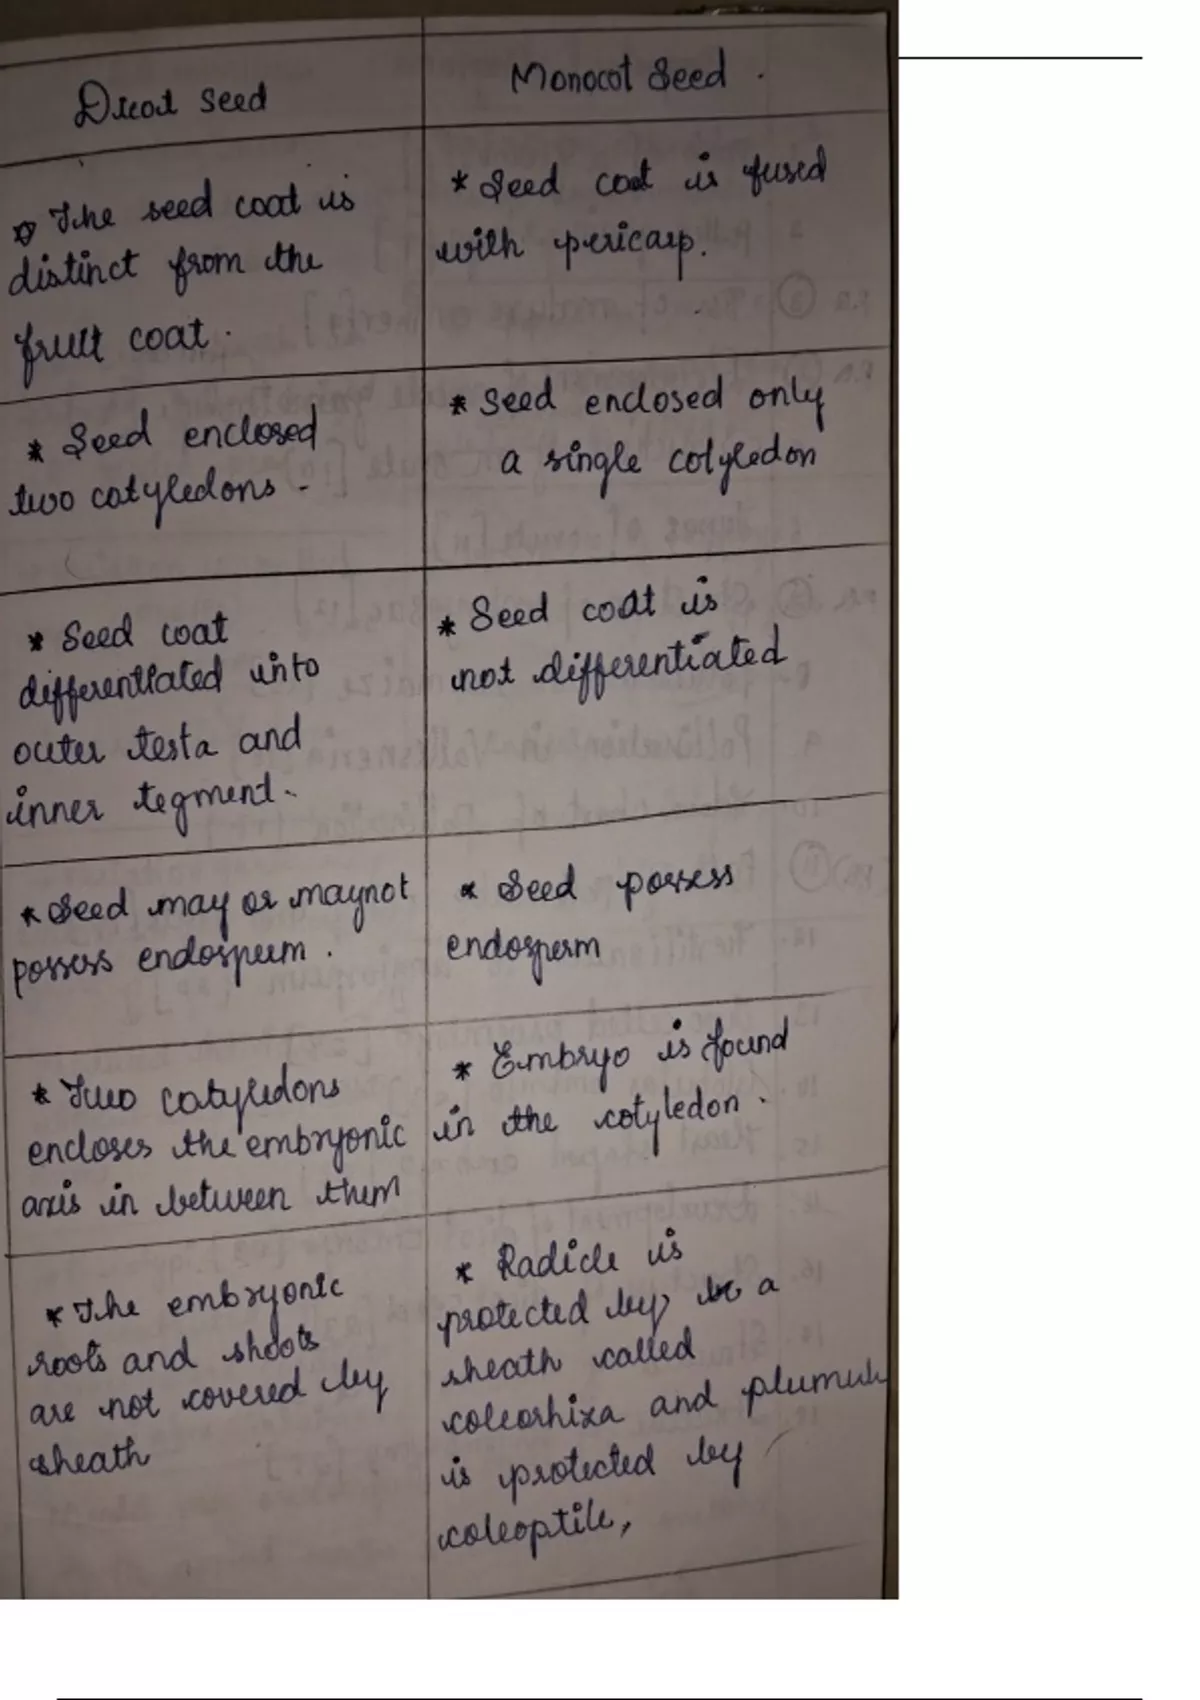 Dicot seed
Monocot Seed.
* The seed coat is
distinct from the
fruit coat.
* Seed coat is fused
with pericarp.
* Seed enclosed
two cotyledons.
* Seed enclosed only
a single cotyledon
* Seed coat
differentiated into
outer testa and
inner tegment.
* Seed coat is
not differentiated
* Seed may or maynot
possess endosperm.
* Seed possess
endosperm
* Two cotyledons
encloses the embryonic
axis in between them
* Embryo is found
in the cotyledon.
* The embryonic
roots and shoots
are not covered by
sheath
* Radicle is
protected by, be a
sheath called
coleorhiza and plumule
is protected by
coleoptile,